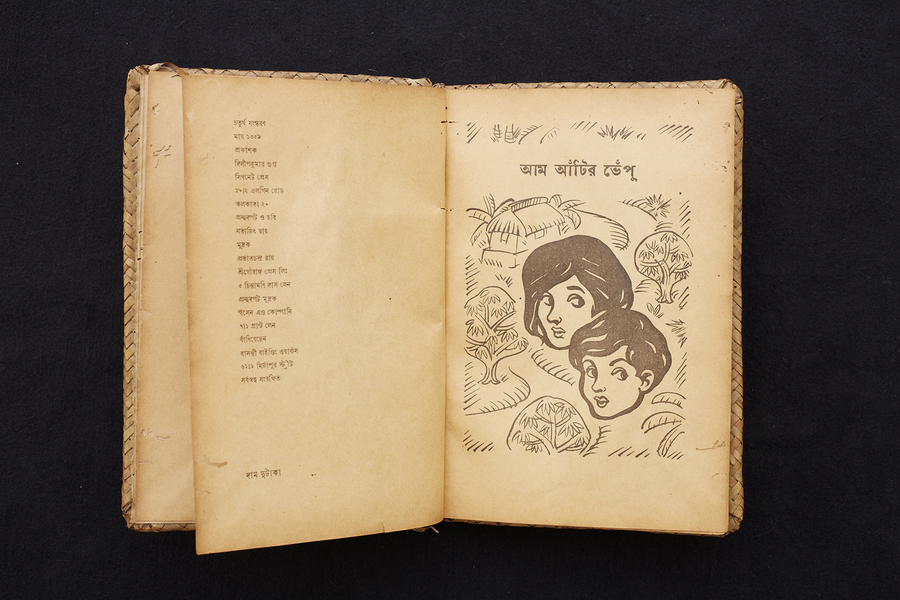 চতুর্থ সংস্করণ
মাঘ ১৩৫৯
প্রকাশক
দিলীপকুমার গুপ্ত
সিগনেট প্রেস
১০।২ এলগিন রোড
কলকাতা ২০
প্রচ্ছদপট ও ছবি
সত্যজিৎ রায়
মুদ্রক
প্রভাতচন্দ্র রায়
শ্রীগৌরাঙ্গ প্রেস লিঃ
৫ চিন্তামণি দাস লেন
প্রচ্ছদপট মুদ্রক
গসেন এণ্ড কোম্পানি
৭।১ গ্রান্ট লেন
বাঁধিয়েছেন
বাসন্তী বাইন্ডিং ওয়ার্কস
৬১।১ মির্জাপুর স্ট্রীট
সর্বস্বত্ব সংরক্ষিত
দাম দুটাকা
আম আঁটির ভেঁপু